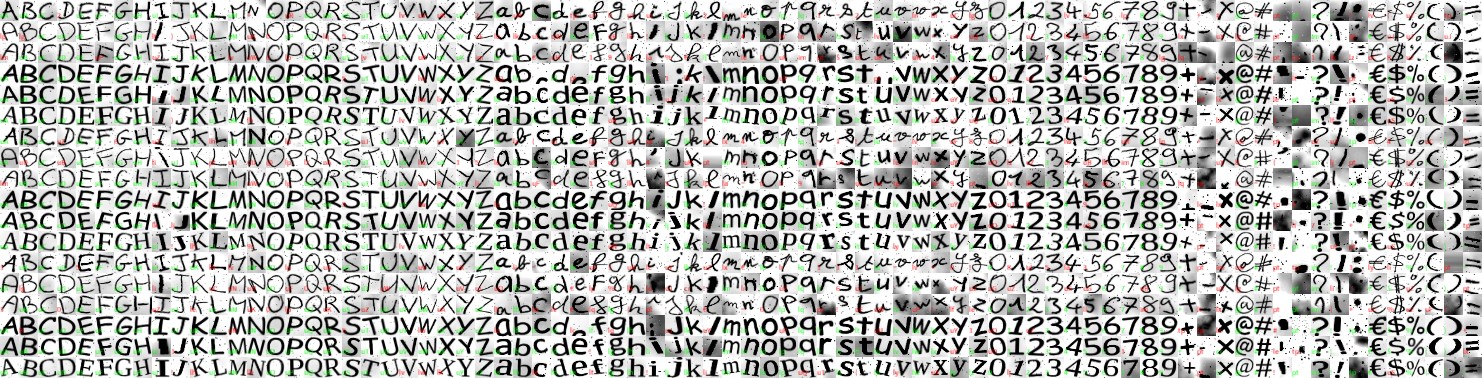 ABCDEFGHIJKLMNOPQRSTUVWXYZabcdefghijklmnopqrstuvwxyz0123456789+-×@#?!€$%()=
ABCDEFGHIJKLMNOPQRSTUVWXYZabcdefghijklmnopqrstuvwxyz0123456789+-×@#?!€$%()=
ABCDEFGHIJKLMNOPQRSTUVWXYZabcdefghijklmnopqrstuvwxyz0123456789+-×@#?!€$%()=
ABCDEFGHIJKLMNOPQRSTUVWXYZabcdefghijklmnopqrstuvwxyz0123456789+-×@#?!€$%()=
ABCDEFGHIJKLMNOPQRSTUVWXYZabcdefghijklmnopqrstuvwxyz0123456789+-×@#?!€$%()=
ABCDEFGHIJKLMNOPQRSTUVWXYZabcdefghijklmnopqrstuvwxyz0123456789+-×@#?!€$%()=
ABCDEFGHIJKLMNOPQRSTUVWXYZabcdefghijklmnopqrstuvwxyz0123456789+-×@#?!€$%()=
ABCDEFGHIJKLMNOPQRSTUVWXYZabcdefghijklmnopqrstuvwxyz0123456789+-×@#?!€$%()=
ABCDEFGHIJKLMNOPQRSTUVWXYZabcdefghijklmnopqrstuvwxyz0123456789+-×@#?!€$%()=
ABCDEFGHIJKLMNOPQRSTUVWXYZabcdefghijklmnopqrstuvwxyz0123456789+-×@#?!€$%()=
ABCDEFGHIJKLMNOPQRSTUVWXYZabcdefghijklmnopqrstuvwxyz0123456789+-×@#?!€$%()=
ABCDEFGHIJKLMNOPQRSTUVWXYZabcdefghijklmnopqrstuvwxyz0123456789+-×@#?!€$%()=
ABCDEFGHIJKLMNOPQRSTUVWXYZabcdefghijklmnopqrstuvwxyz0123456789+-×@#?!€$%()=
ABCDEFGHIJKLMNOPQRSTUVWXYZabcdefghijklmnopqrstuvwxyz0123456789+-×@#?!€$%()=
ABCDEFGHIJKLMNOPQRSTUVWXYZabcdefghijklmnopqrstuvwxyz0123456789+-×@#?!€$%()=
ABCDEFGHIJKLMNOPQRSTUVWXYZabcdefghijklmnopqrstuvwxyz0123456789+-×@#?!€$%()=
ABCDEFGHIJKLMNOPQRSTUVWXYZabcdefghijklmnopqrstuvwxyz0123456789+-×@#?!€$%()=
ABCDEFGHIJKLMNOPQRSTUVWXYZabcdefghijklmnopqrstuvwxyz0123456789+-×@#?!€$%()=